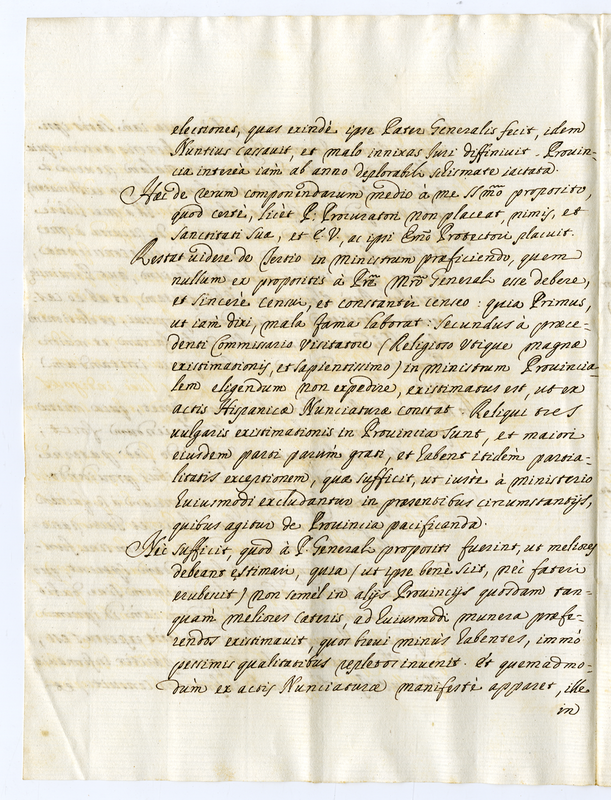 electiones, quas exindè ipse Pater Generalis fecit, idem
Nuntius cassavit, et malo innixas Juri diffinivit. Provin-
cia interea iam ab anno deplorabili schismate iactata.
Hæc de rerum componendarum medio à me SSmo proposito,
quod certè, licèt P. Procuratori non placeat, nimis, et
Sanctitati Suæ, et E.V., ac ipsi Emo Protectori placuit.
Restat videre de Tertio in Ministrum præficiendo, quem
nullum ex propositis à Pre Mro General esse debere,
et sincerè censui, et constantèr censeo: quia Primus,
ut iam dixi, mala fama laborat: Secundus à præce-
denti Commissario Visitatore (Religioso utique magnæ
existimationis, et sapientissimo) in Ministrum Provincia-
lem eligendum non expedire, existimatus est, ut ex
actis Hispanicæ Nunciaturæ constat. Reliqui tres
vulgaris existimationis in Provincia sunt, et maiori
eiusdem parti parum grati, et habent itidèm partia-
litatis exceptionem, quæ sufficit, ut iustè à ministerio
huiusmodi excludantur in præsentibus circumstantijs,
quibus agitur de Provincia pacificanda.
Nec sufficit, quod à P. General propositi fuerint, ut meliores
debeant estimari, quia (ut ipse benè scit, nec fateri
erubescit) non semèl in alijs Provincijs quosdam tan-
quam meliores cæteris, ad huiusmodi munera præfe-
rendos existimavit, quos brevi minus habentes, immò
pessimis qualitatibus repletos invenit. Et quemadmo-
dùm ex actis Nunciaturæ manifestè apparet, ille
in